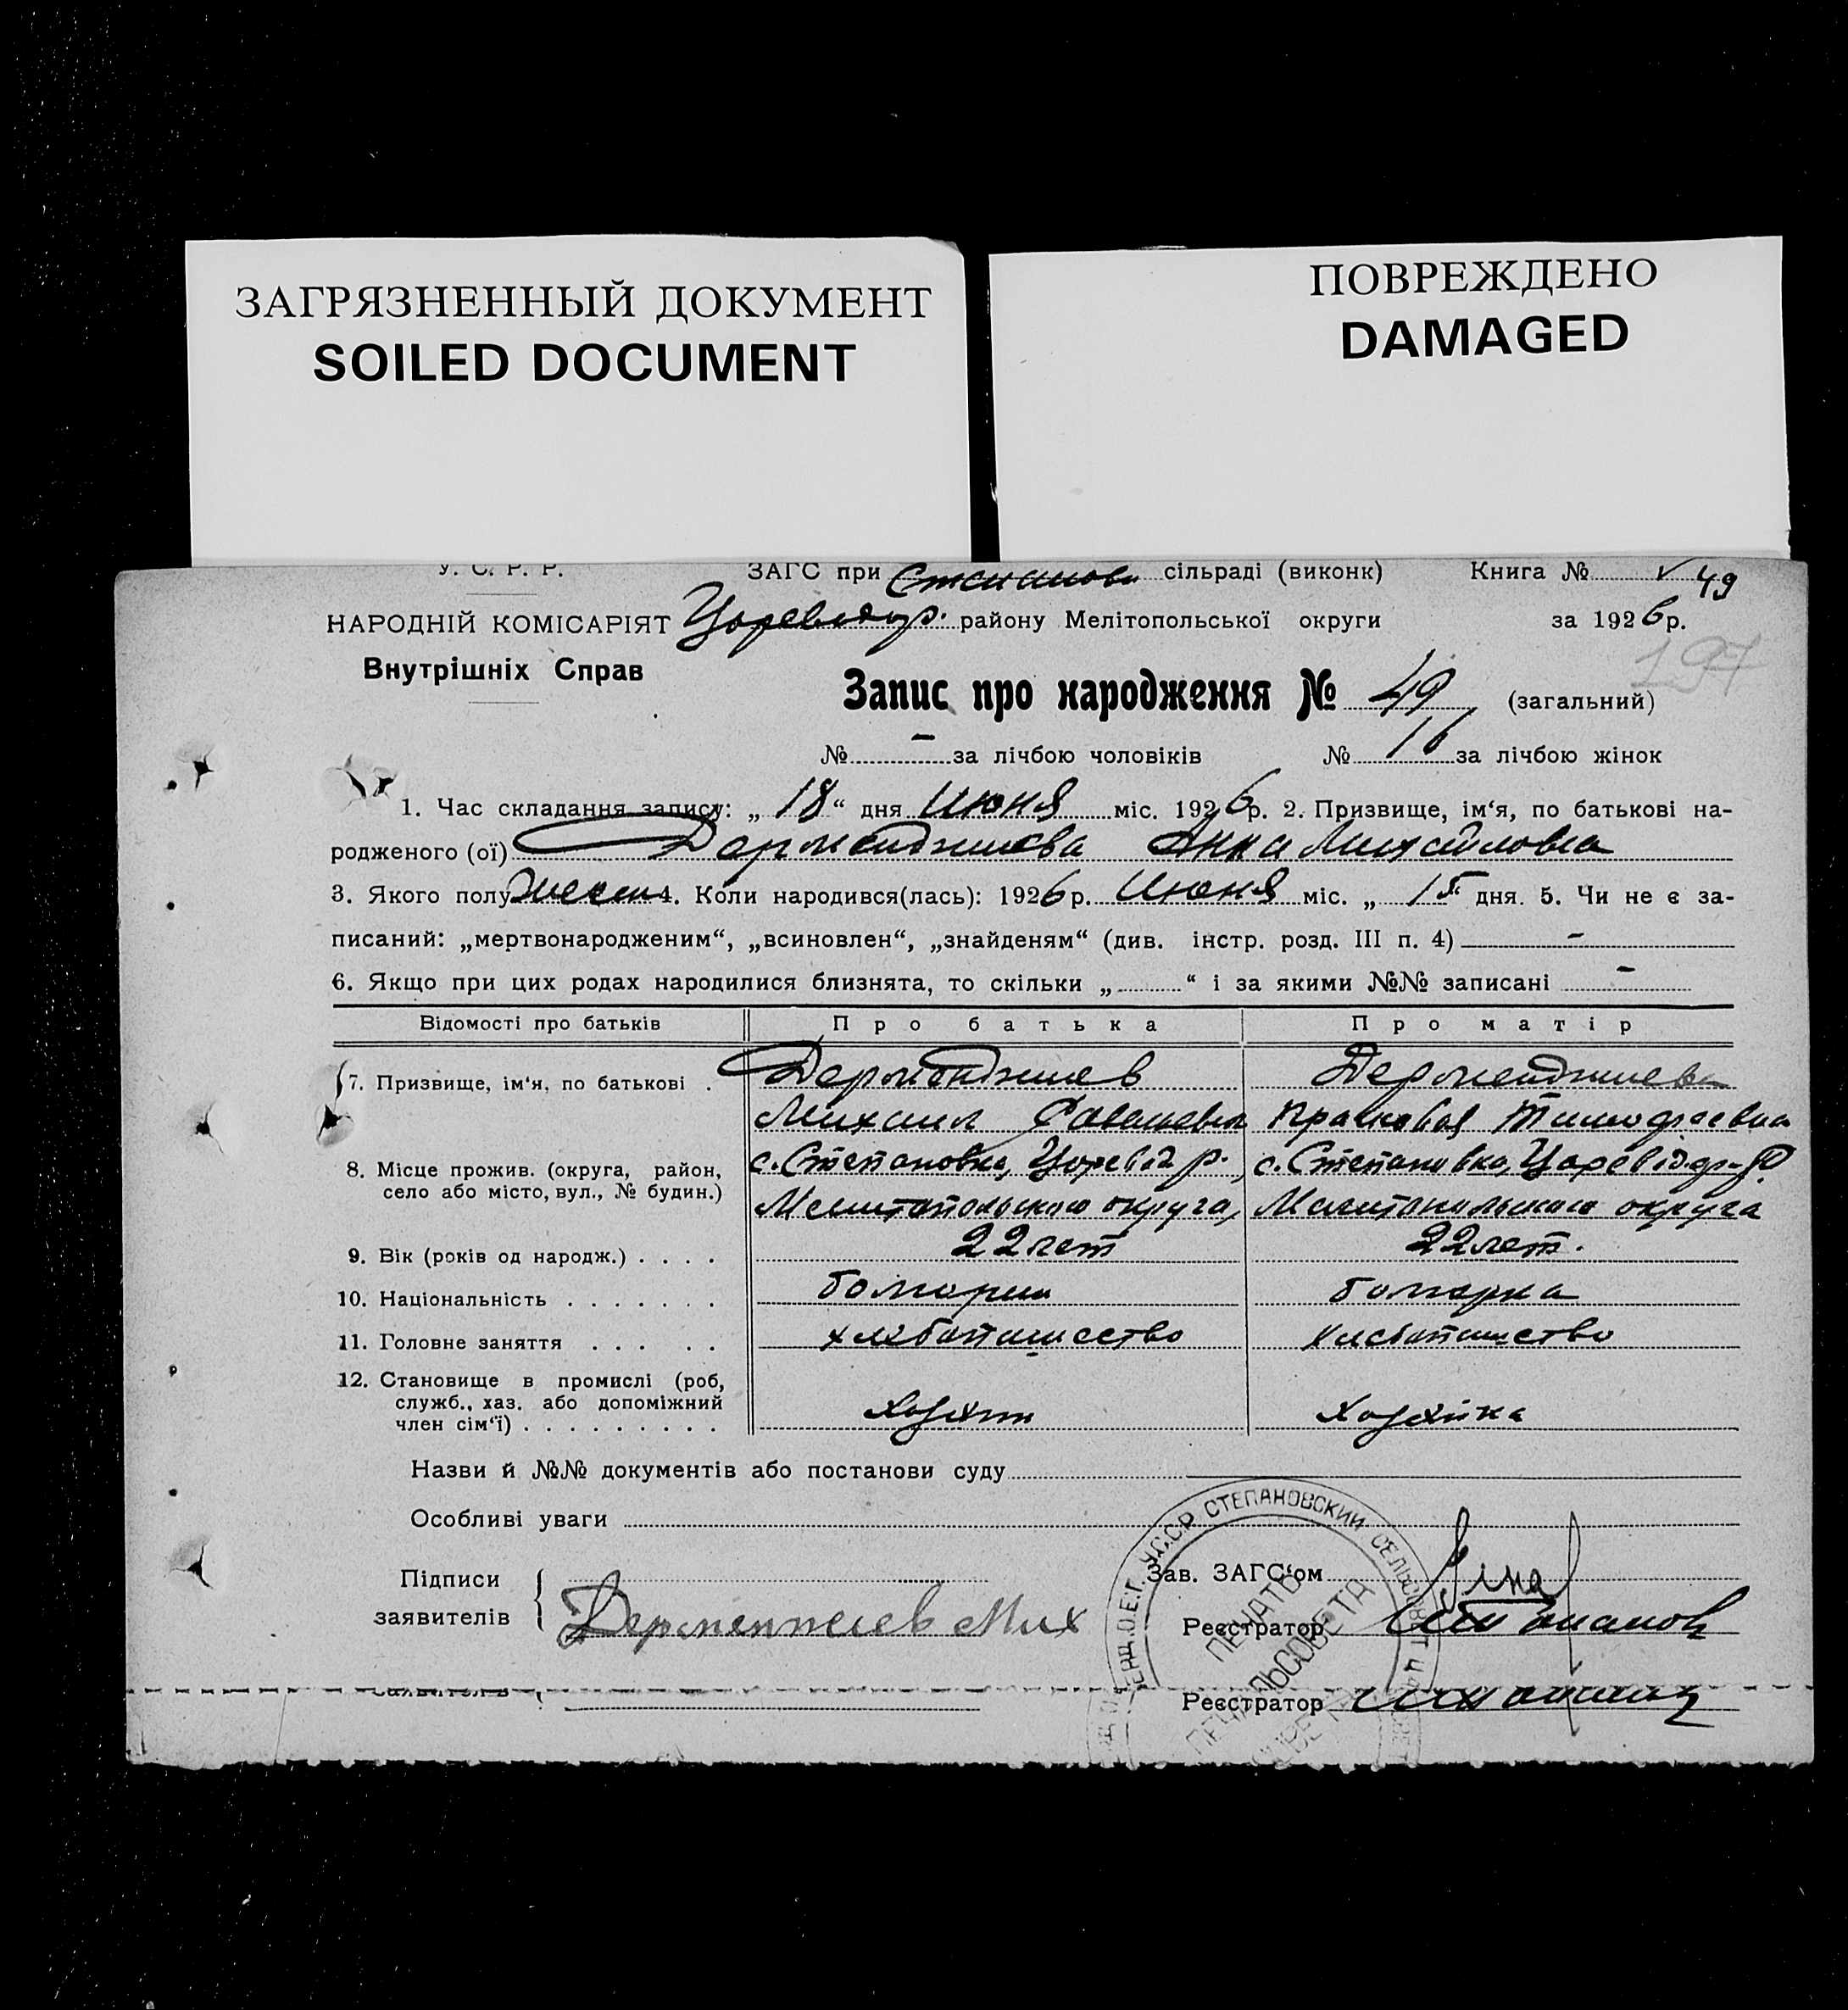 ЗАГРЯЗНЕННЫЙ ДОКУМЕНТ
SOILED DOCUMENT
ПОВРЕЖДЕНО
DAMAGED
У. С. Р. Р. ЗАГС при Степанов сільраді (виконк) Книга № 49
НАРОДНІЙ КОМІСАРІЯТ Цареводар. району Мелітопольської округи за 1926 р.
197
Внутрішніх Справ
Запис про народження № 49 (загальний)
№ - за лічбою чоловіків № 16 за лічбою жінок
1. Час складання запису: „ 18 “ дня Июня міс. 1926 р. 2. Призвище, ім‘я, по батькові на-
родженого (ої) Дерменджиева Анна Михайловна
3. Якого полу женск 4. Коли народився(лась): 1926 р. Июня міс. „ 15 “ дня. 5. Чи не є за-
писаний: „мертвонародженим“, „всиновлен“, „знайденям“ (див. інстр. розд. III п. 4) -
6. Якщо при цих родах народилися близнята, то скільки „ “ і за якими №№ записані -
Відомості про батьків Про батька Про матір
7. Призвище, ім‘я, по батькові . Дерменджиев Дерменджиева
Михаил Савельевич Прасковья Тимофеевна
8. Місце прожив. (округа, район, с. Степановка, Царевод р., с. Степановка, Царевод.
село або місто, вул., № будин.)
Мелитопольского округа, Мелитопольского округа
9. Вік (років од народж.) . . . . 22 лет 22 лет.
10. Національність . . . . . . . болгарин болгарка
11. Головне заняття . . . . . хлебопашество хлебопашество
12. Становище в промислі (роб,
служб., хаз. або допоміжний
член сім‘ї) . . . . . . . . . Хозяин Хозяйка
Назви й №№ документів або постанови суду
Особливі уваги
УССР СТЕПАНОВСКИЙ СЕЛЬСОВЕТ
ПЕЧАТЬ
СЕЛЬСОВЕТА
Підписи Зав. ЗАГС‘ом
заявителів Дерменжиев Мих Реєстратор
Реєстратор